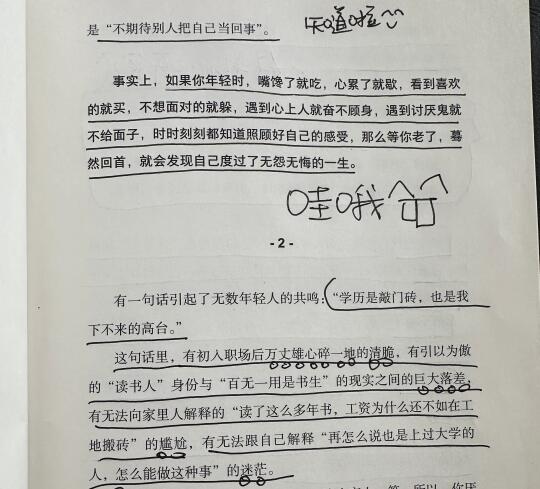 是“不期待别人把自己当回事”。
知道啦
事实上，如果你年轻时，嘴馋了就吃，心累了就歇，看到喜欢
的就买，不想面对的就躲，遇到心上人就奋不顾身，遇到讨厌鬼就
不给面子，时时刻刻都知道照顾好自己的感受，那么等你老了，蓦
然回首，就会发现自己度过了无怨无悔的一生。
哇哦
- 2 -
有一句话引起了无数年轻人的共鸣：“学历是敲门砖，也是我
下不来的高台。”
这句话里，有初入职场后万丈雄心碎一地的清脆，有引以为傲
的“读书人”身份与“百无一用是书生”的现实之间的巨大落差，
有无法向家里人解释的“读了这么多年书，工资为什么还不如在工
地搬砖”的尴尬，有无法跟自己解释“再怎么说也是上过大学的
人，怎么能做这种事”的迷茫。